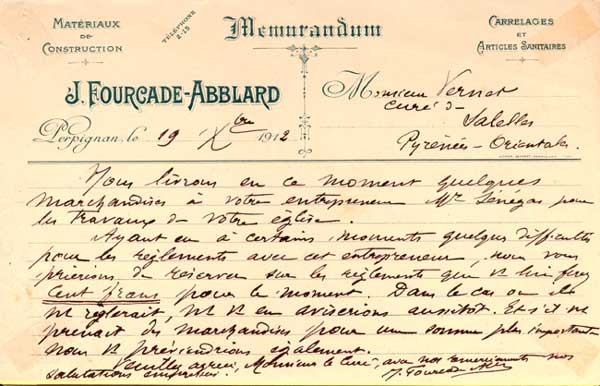 MATÉRIAUX
DE
CONSTRUCTION
TÉLÉPHONE
2-15
Memorandum
CARRELAGES
ET
ARTICLES SANITAIRES
J. FOURCADE-ABBLARD
Perpignan, le 19 Xbre 1912
Monsieur Vernet
curé de
Saleilles
Pyrénées-Orientales
Nous livrons en ce moment quelques
marchandises à votre entrepreneur Mr Sénégas pour
les travaux de votre église.
Ayant eu à certains moments quelques difficultés
pour les règlements avec cet entrepreneur, nous vous
prierions de réserver sur les règlements que v. lui ferez
Cent francs pour le moment. Dans le cas ou il
ne règlerait, ns v. en aviserions aussitôt. Et s'il ns
prenait des marchandises pour une somme plus importante
nous v. préviendrions également.
Veuillez agréer, Monsieur le Curé, avec nos remerciements nos
salutations empressées.